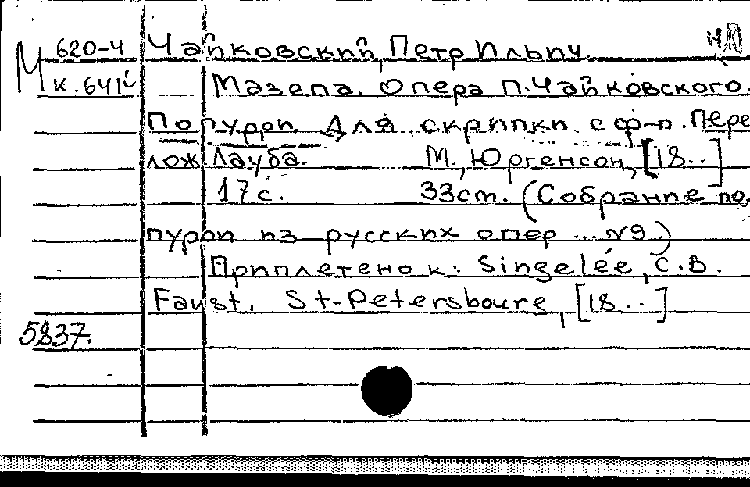 М 620-4 Чайковский, Петр Ильич.
к.641 Мазепа. Опера П.Чайковского.
Попурри для скрипки с ф-п. Пере
лож. Лауба. М., Юргенсон, [18..]
17 с. 33 см. (Собрание по
пурри из русских опер ... №9)
Приплетено к: Singelée, C.B.
Faust. St-Petersbourg, [18..]
5837.